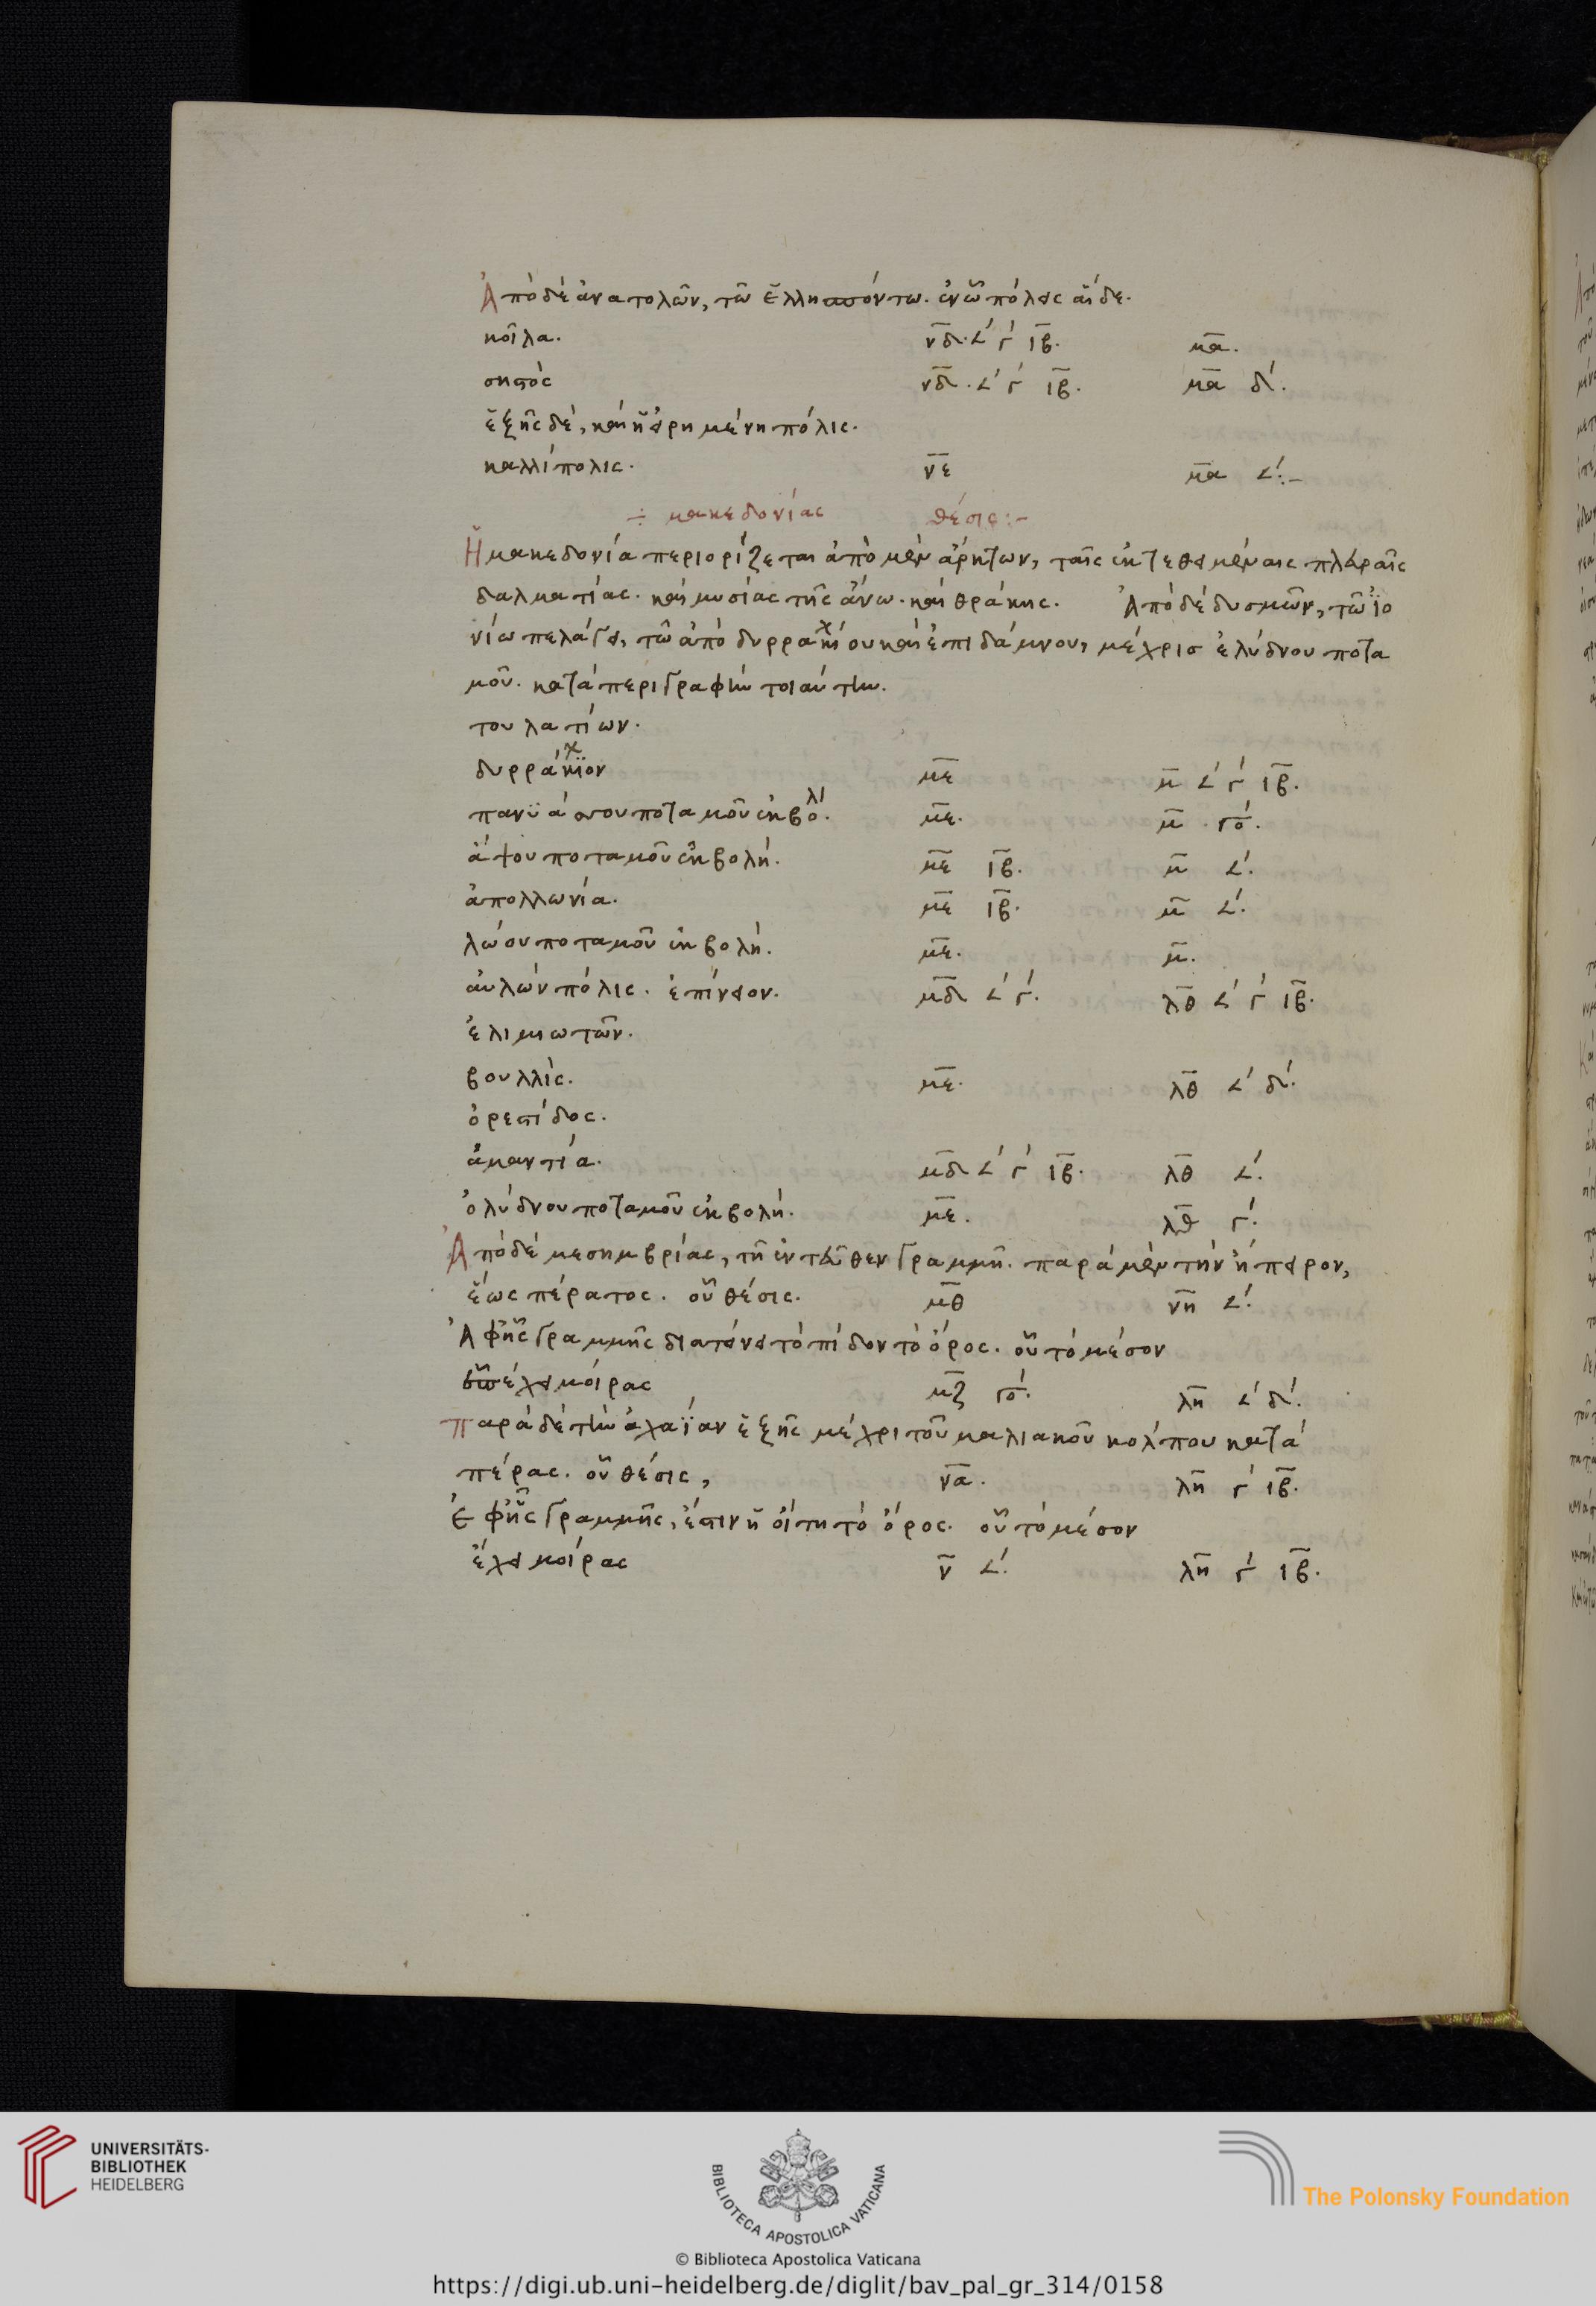 Ἀπὸ δὲ ἀνατολῶν, τῶ ἑλλησπόντω. ἐν ὧ πόλεις αἵδε.
κοῖλα. ν̅δ̅. 𐅵΄ γ΄ ι̅β̅. μ̅α̅.
σηστὸς ν̅δ̅. 𐅵΄ γ΄ ι̅β̅. μ̅α̅ δ΄.
ἑξῆς δὲ, καὶ ἡ εἰρημένη πόλις.
καλλίπολις. ν̅ε̅ μ̅α̅ 𐅵΄:-
÷ μακεδονίας θέσις:-
Ἡ μακεδονία περιορίζεται ἀπὸ μὲν ἄρκτων, ταῖς ἐκτεθειμέναις πλευραῖς
δαλματίας. καὶ μυσίας τῆς ἄνω. καὶ θράκης. Ἀπὸ δὲ δυσμῶν, τῶ ἰο
νίω πελάγει, τῶ ἀπὸ δυρραχίου καὶ ἐπιδάμνου, μέχρις ἐλύδνου ποτα
μοῦ. κατὰ περιγραφὴν τοιαύτην.
τουλατίων.
δυρράχϊον μ̅ε̅ μ̅ 𐅵΄ γ΄ ι̅β̅.
πανϋάσου ποταμοῦ ἐκβολί. μ̅ε̅. μ̅ γο΄.
ἄψου ποταμοῦ ἐκβολή. μ̅ε̅ ι̅β̅. μ̅ 𐅵΄.
ἀπολλωνία. μ̅ε̅ ι̅β̅. μ̅ 𐅵΄.
λώου ποταμοῦ ἐκβολή. μ̅ε̅. μ̅.
αὐλὼν πόλις. ἐπίνειον. μ̅δ̅ 𐅵΄ γ΄. λ̅θ̅ 𐅵΄ γ΄ ι̅β̅.
ἐλιμιωτῶν.
βουλλίς. μ̅ε̅. λ̅θ̅ 𐅵΄ δ΄.
ὀρεστίδος.
ἀμαντία. μ̅δ̅ 𐅵΄ γ΄ ι̅β̅. λ̅θ̅ 𐅵΄.
ὀλύδνου ποταμοῦ ἐκβολή. μ̅ε̅. λ̅θ̅ γ΄.
Ἀπὸ δὲ μεσημβρίας, τῆ ἐντεῦθεν γραμμῆ. παρὰ μὲν τὴν ἤπειρον,
ἕως πέρατος. οὗ θέσις. μ̅θ̅ ν̅η̅ 𐅵΄.
Ἀφ' ἧς γραμμῆς διατείνει τὸ πίδον τὸ ὄρος. οὗ τὸ μέσον
ἐπέχει μοίρας μ̅ζ̅ γο΄. λ̅η̅ 𐅵΄ δ΄.
παρὰ δὲ τὴν ἀχαΐαν ἑξῆς μέχρι τοῦ μαλιακοῦ κόλπου κατὰ
πέρας. οὗ θέσις, ν̅α̅. λ̅η̅ γ΄ ι̅β̅.
Ἐφ' ἧς γραμμῆς, ἐστιν ἡ οἴτη τὸ ὄρος. οὗ τὸ μέσον
ἔχει μοίρας ν̅ 𐅵΄. λ̅η̅ γ΄ ι̅β̅.
UNIVERSITÄTS-
BIBLIOTHEK
HEIDELBERG
BIBLIOTECA APOSTOLICA VATICANA
The Polonsky Foundation
© Biblioteca Apostolica Vaticana
https://digi.ub.uni-heidelberg.de/diglit/bav_pal_gr_314/0158